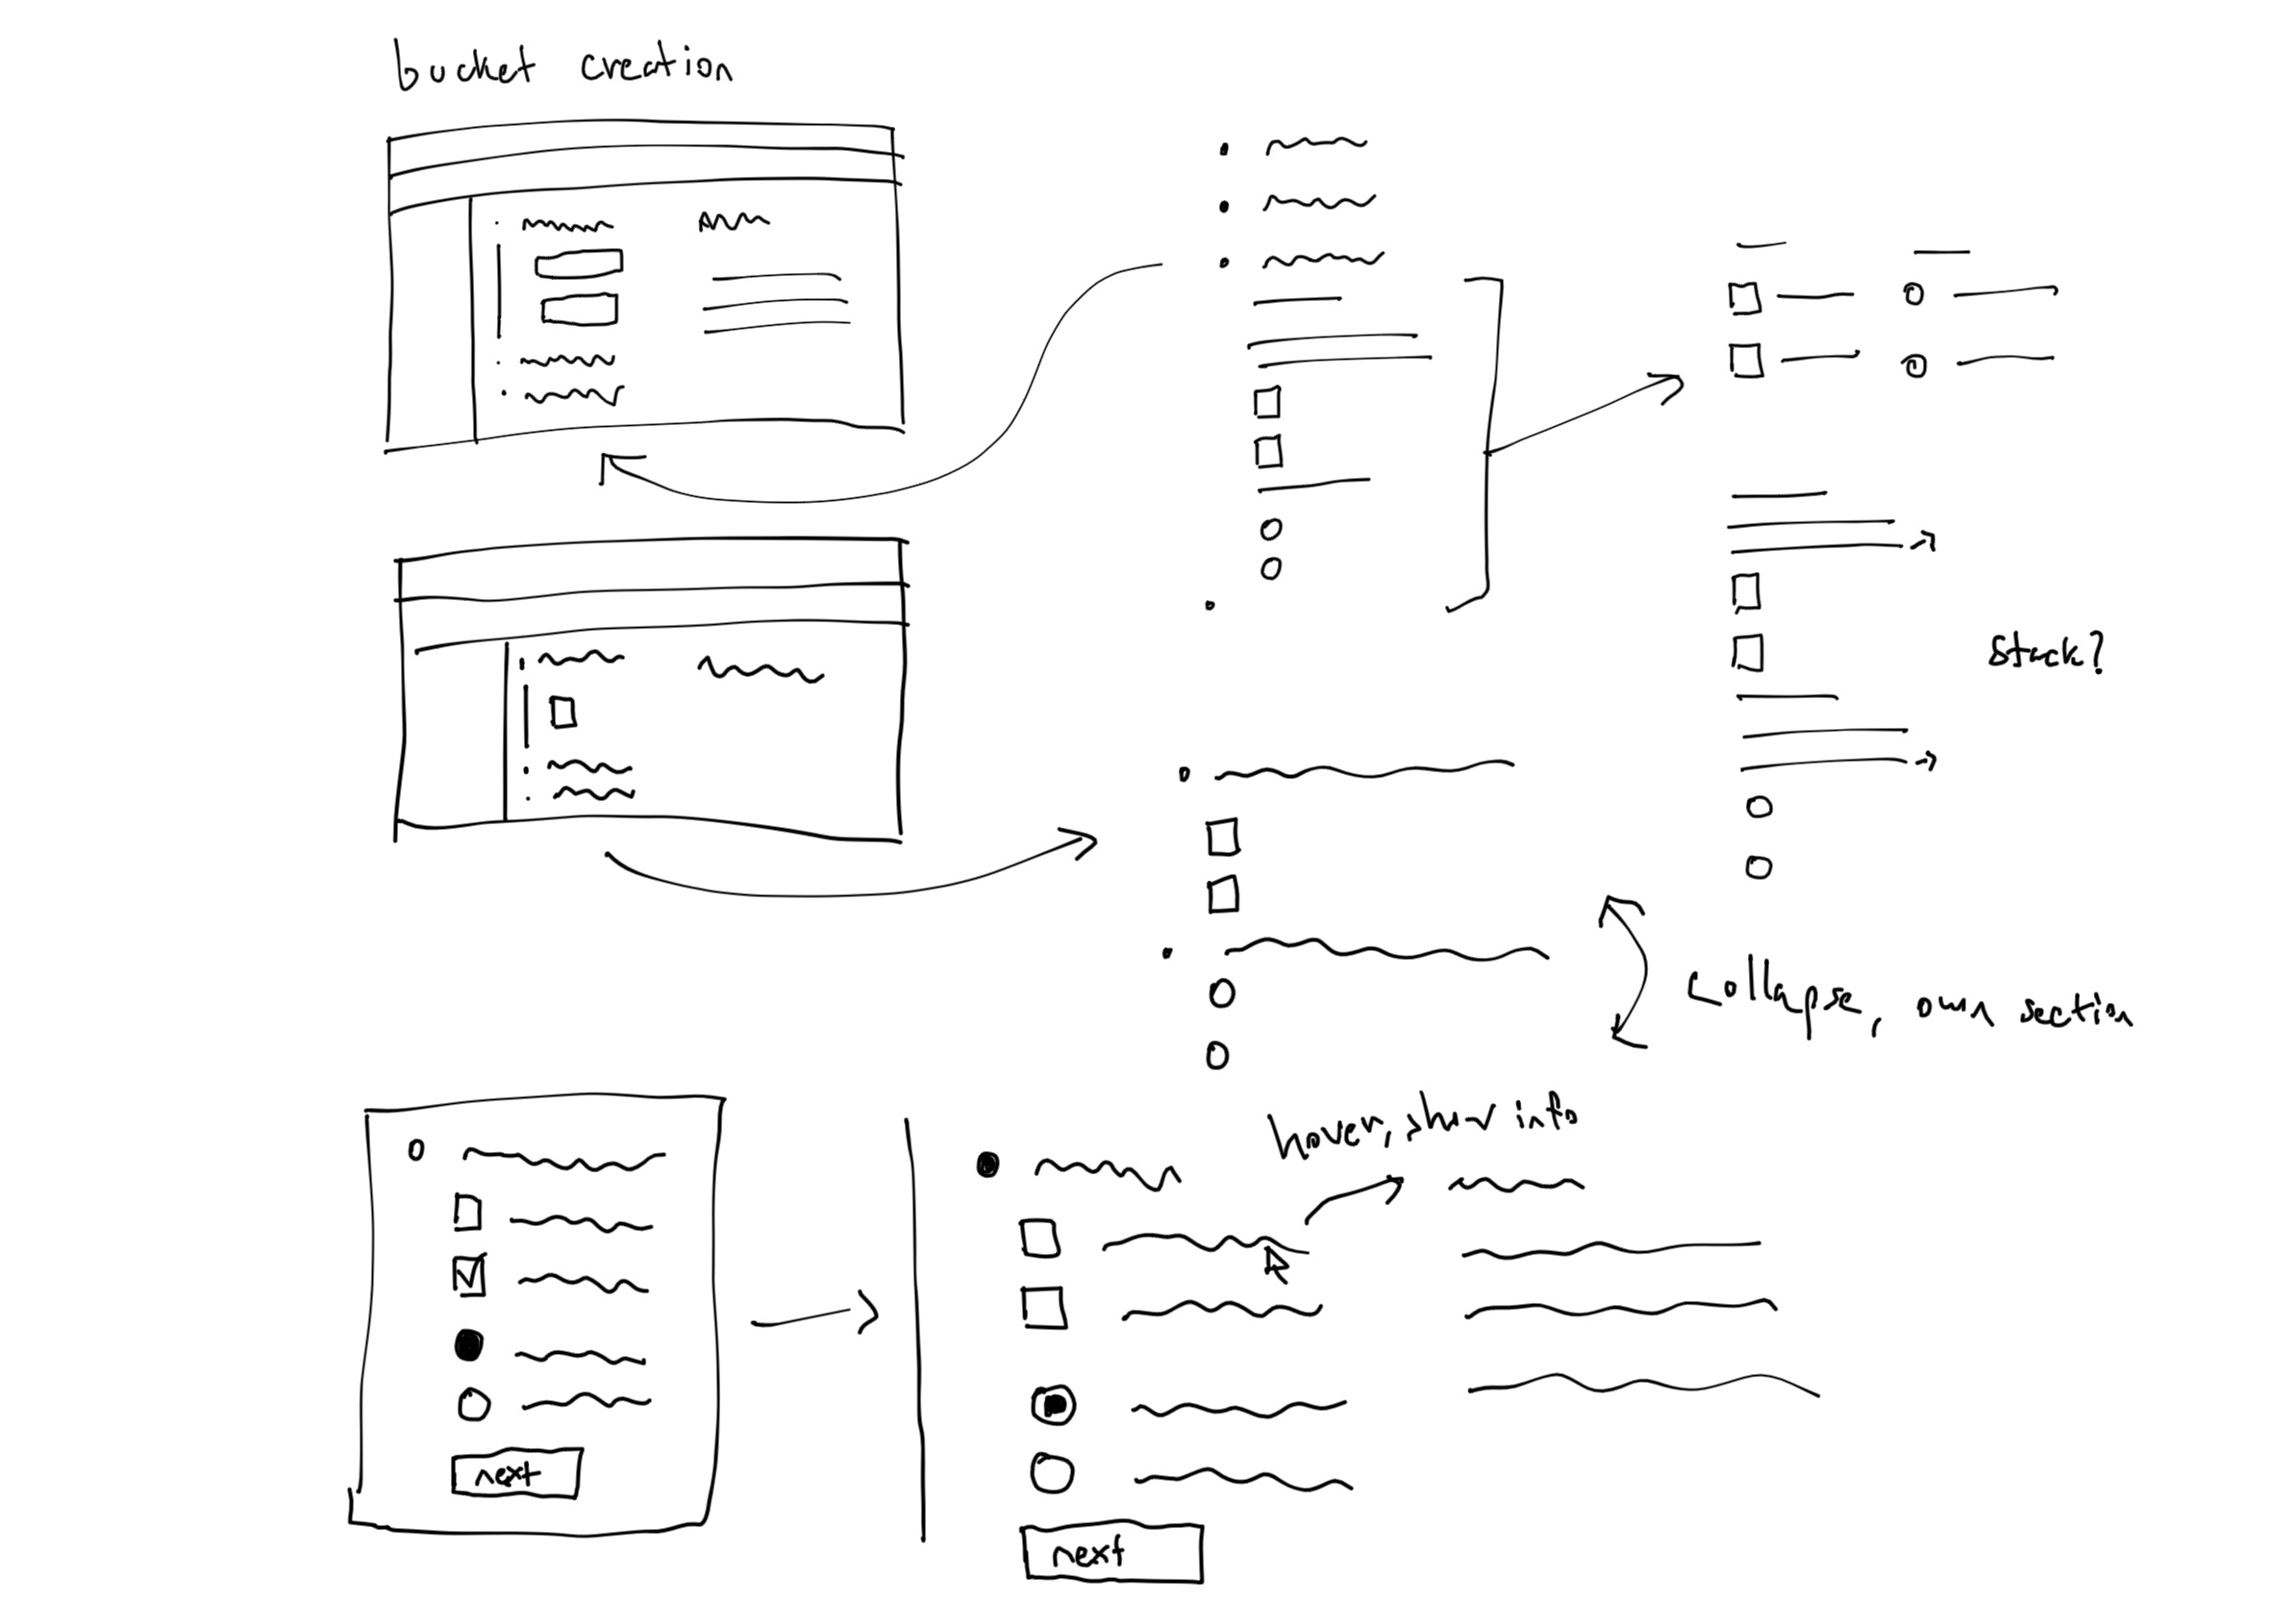 bucket creation
stack?
collapse, own section
hover, show info
next
next